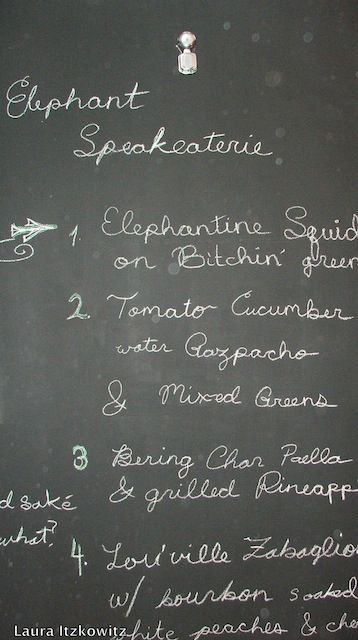 Elephant
Speakeaterie
1. Elephantine Squid
on Bitchin' green
2. Tomato Cucumber
water Gazpacho
& Mixed Greens
3 Bering Char Paella
& grilled Pineapp
d saké
what?
4. Lou'ville Zabaglio
w/ bourbon soaked
white peaches & che
Laura Itzkowitz